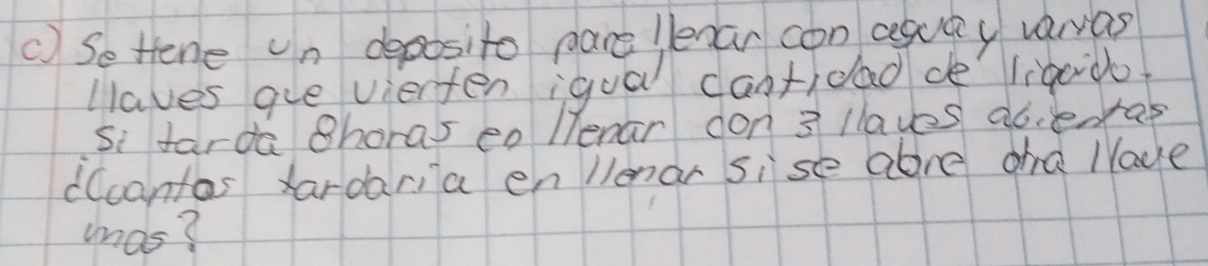 c) Se tiene un deposito para llenar con agua y varyas
llaves que vierten igual cantidad de liquido.
Si tarda 8horas en llenar con 3 llaves abiertas
¿Cuantas tardaria en llenar si se abre otra llave
mas?